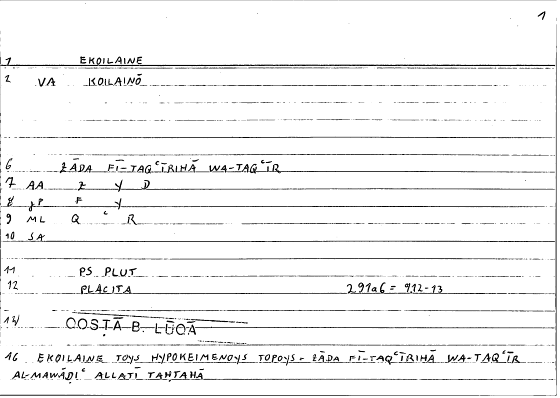 1
1 EKOILAINE
2 VA KOILAINŌ
6 ZĀDA FĪ-TAQʿĪRIHĀ WA-TAQʿĪR
7 AA Z Y D
8 gP F Y
9 ML Q ʿ R
10 SA
11 PS PLUT
12 PLACITA 291a6 = 9,12-13
14 QOSṬĀ B. LŪQĀ
16 EKOILAINE TOYS HYPOKEIMENOYS TOPOYS - ZĀDA FĪ-TAQʿĪRIHĀ WA-TAQʿĪR
AL-MAWĀḌIʿ ALLATĪ TAḤTAHĀ